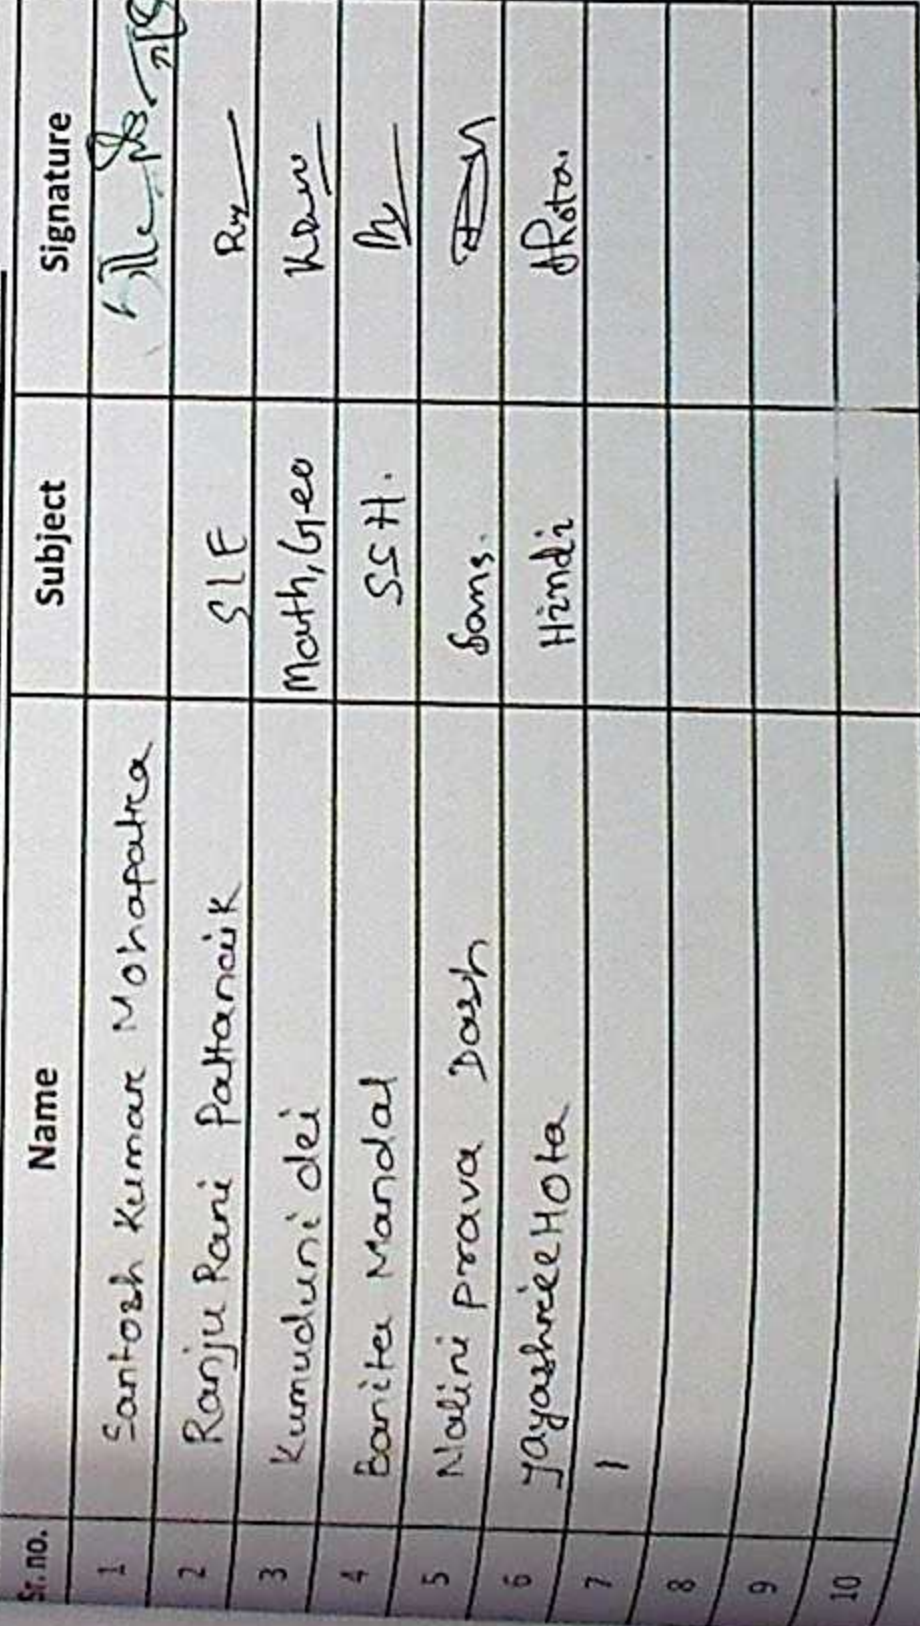 Sr. no. Name Subject Signature
1 Santosh Kumar Mohapatra
2 Ranju Rani Pattanaik SLE
3 Kumuduni dei Math, Geo
4 Banita Mandal SSH.
5 Nalini prava Dash Sans.
6 Jayashree Hota Hindi JHota.
7
8
9
10